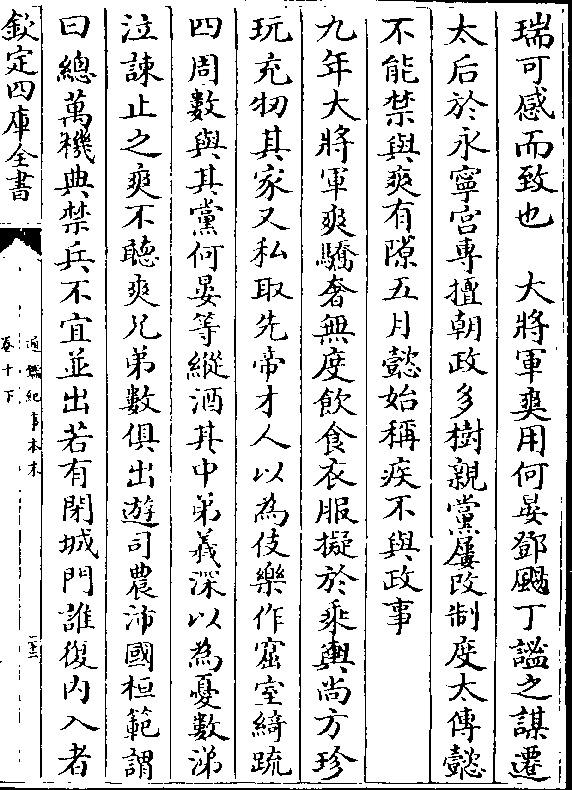 瑞可感而致也　大將軍爽用何晏鄧颺丁謐之謀遷
太后於永寧宮專擅朝政多樹親黨屢改制度太傅懿
不能禁與爽有隙五月懿始稱疾不與政事
九年大將軍爽驕奢無度飲食衣服擬於乗輿尚方珍
玩充牣其家又私取先帝才人以為伎樂作窟室綺疏
四周數與其黨何晏等縱酒其中弟羲深以為憂數涕
泣諫止之爽不聽爽兄弟數俱出遊司農沛國桓範謂
曰總萬機典禁兵不宜並出若有閉城門誰復内入者
欽定四庫全書
通鑑紀事本末
卷十下